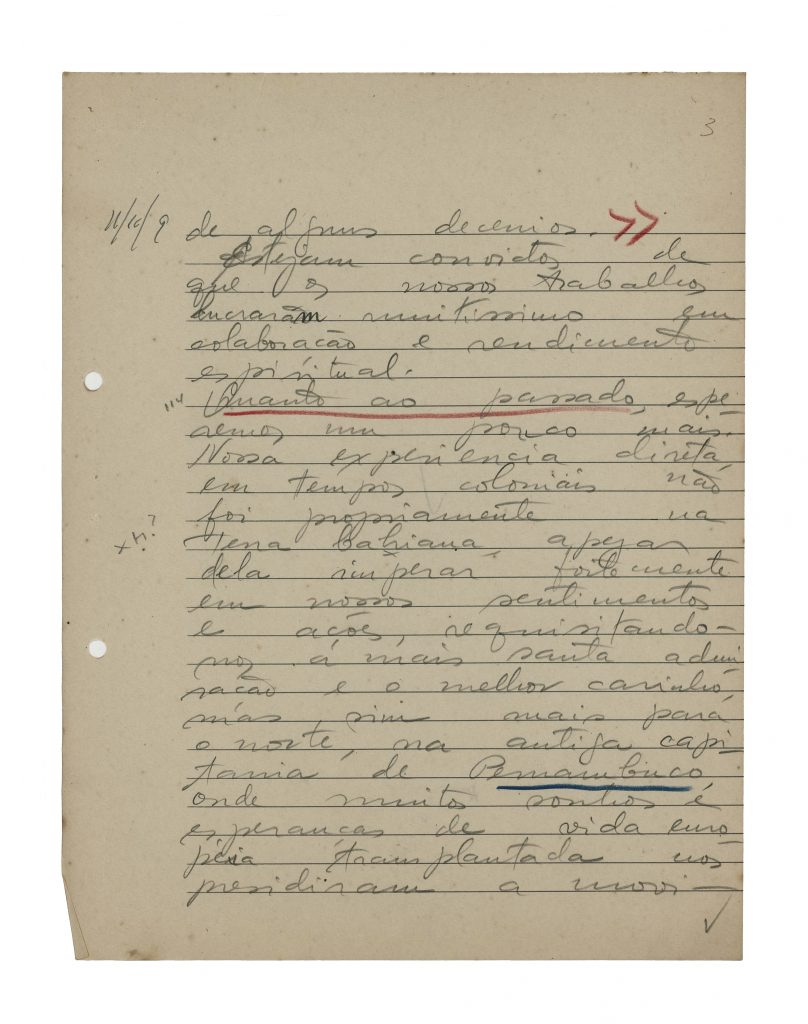 3
de alguns decenios.
Estejam convictos de
que os nossos trabalhos
lucrarãm muitissimo em
colaboracão e rendimento
espiritual.
Quanto ao passado, espe-
remos um pouco mais.
Nossa experiencia direta,
em tempos coloniais não
foi propriamente na
Terra bahiana, apezar
dela imperar fortemente
em nossos sentimentos
e acões, requisitando-
nos á mais santa admi
racão e o melhor carinho,
mas, sim mais para
o norte, na antiga capi-
tania de Pernambuco,
onde muitos sonhos e
esperancas de vida euro
péia transplantada nos
presidiram a movi-